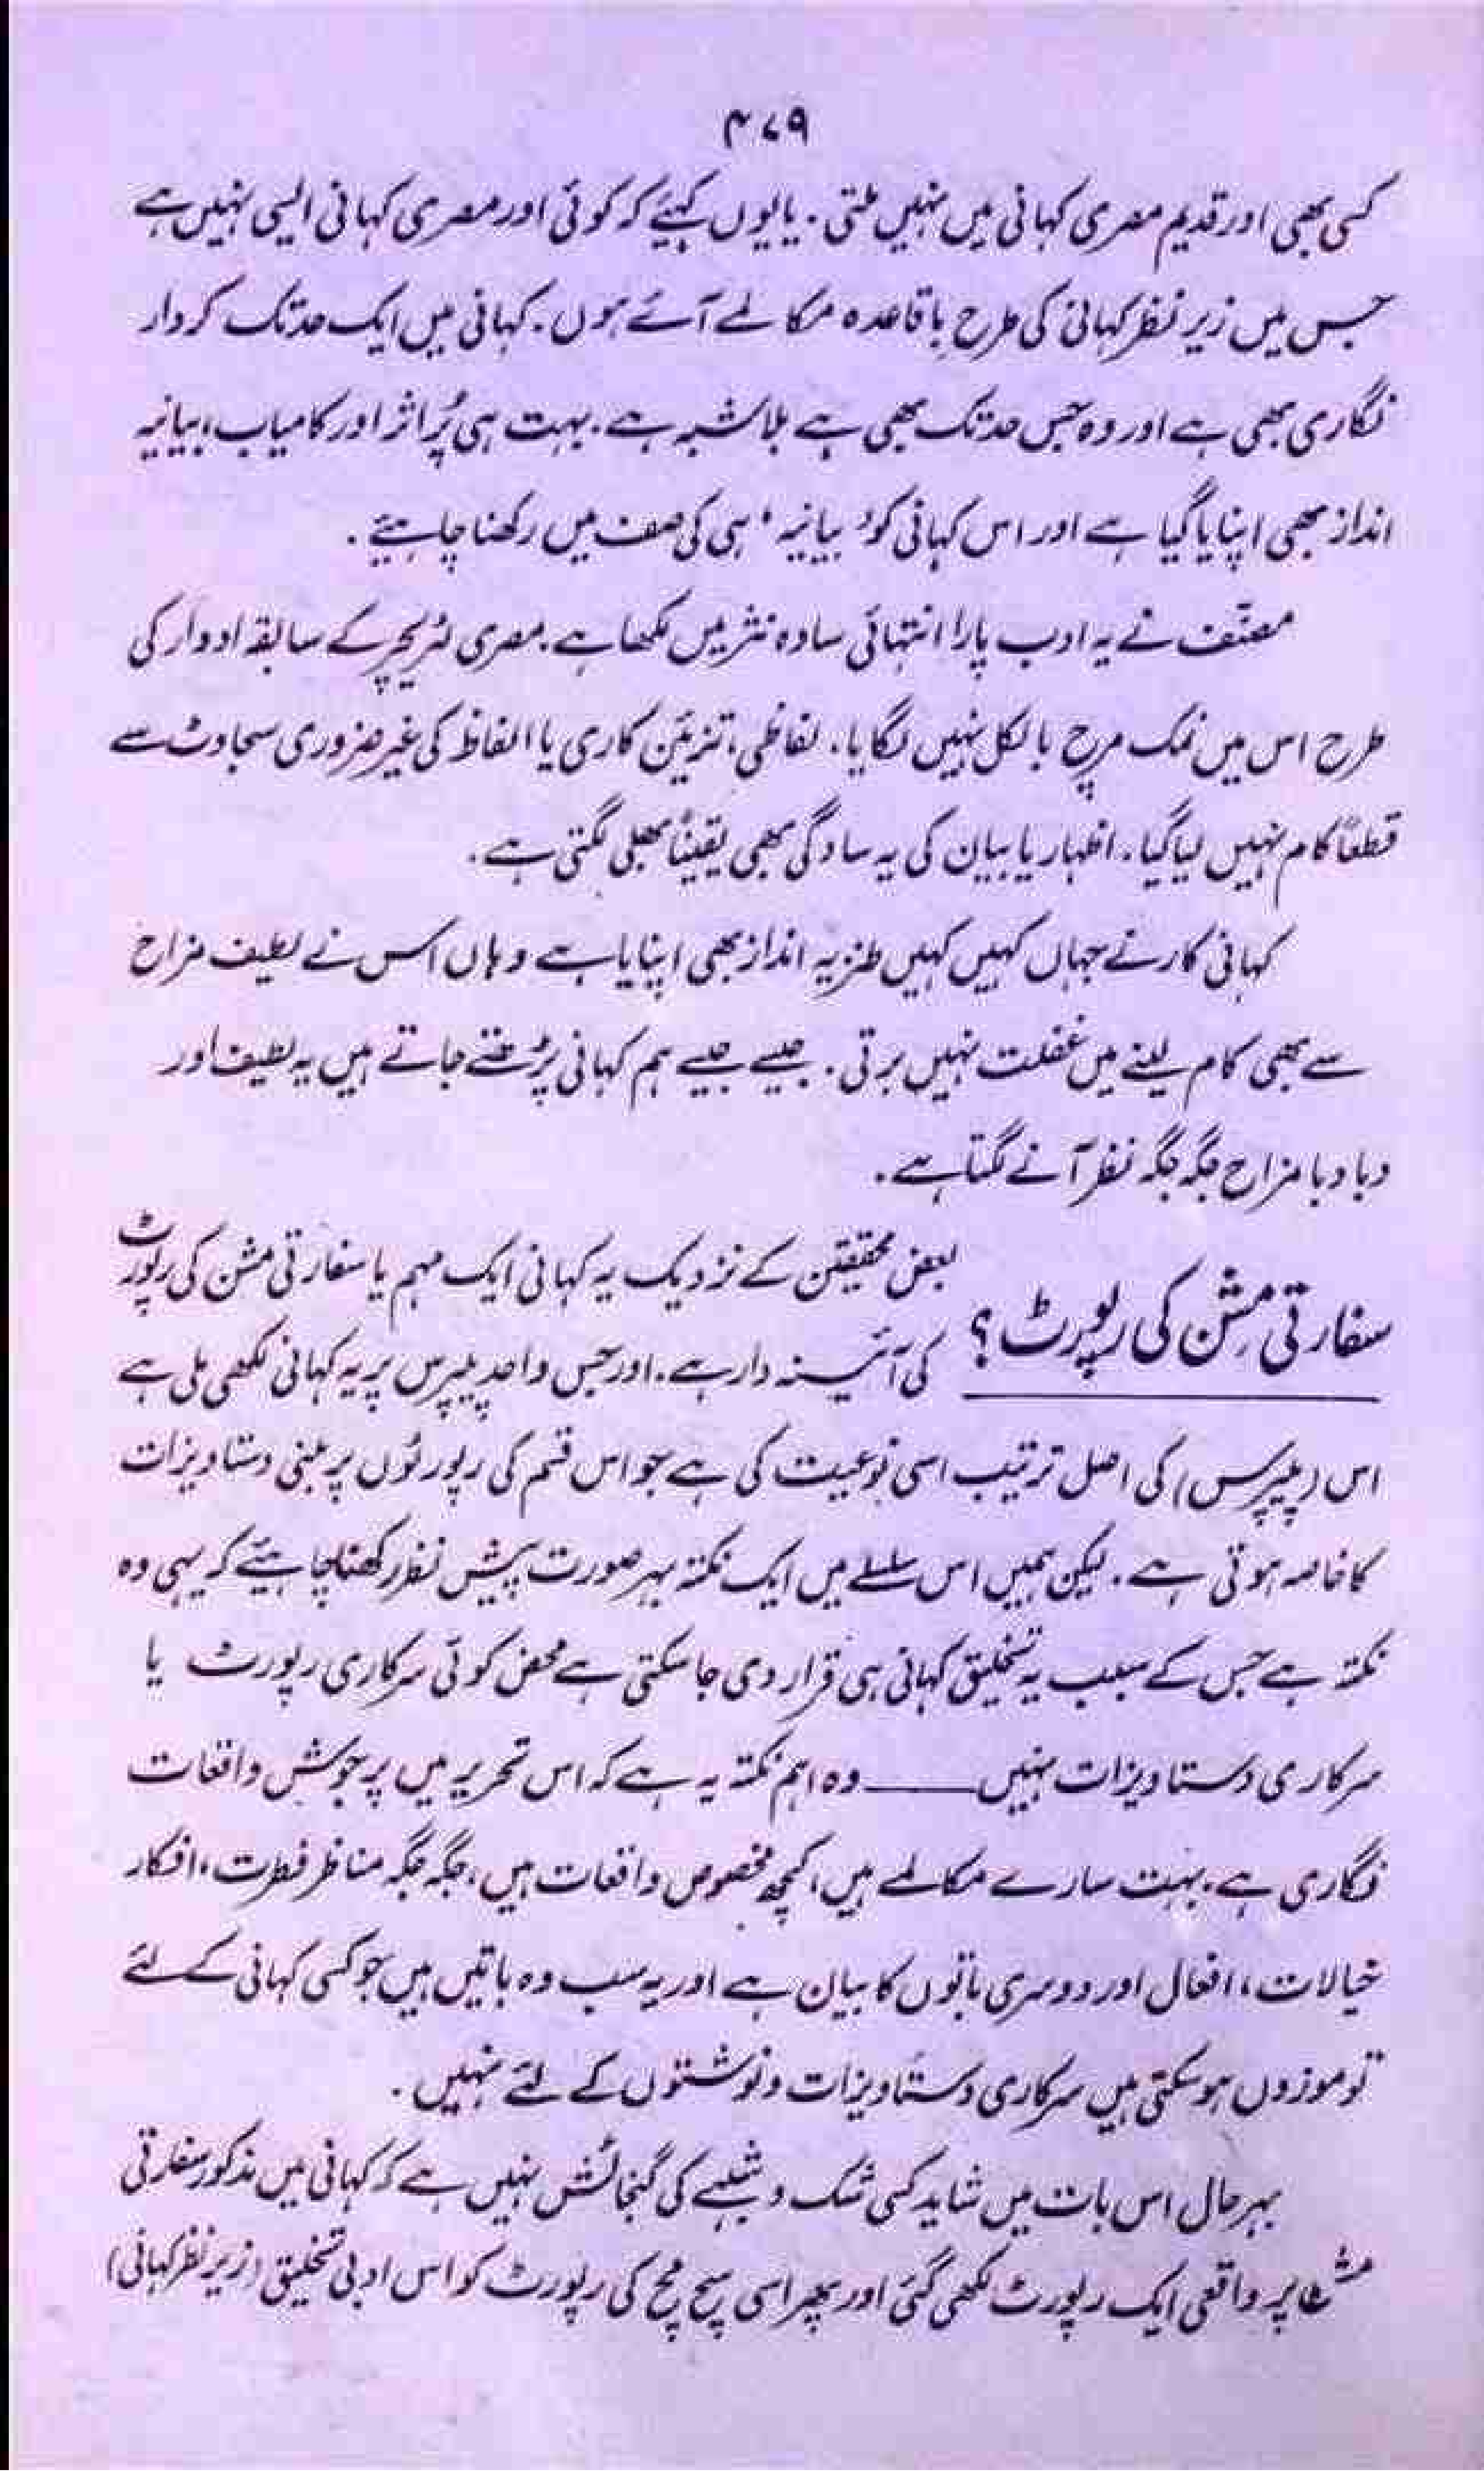 ۴۷۹
کسی بھی اور قدیم مصری کہانی میں نہیں ملتی۔ یا یوں کہیئے کہ کوئی اور مصری کہانی ایسی نہیں ہے
جس میں زیر نظر کہانی کی طرح باقاعدہ مکالمے آئے ہوں۔ کہانی میں ایک حد تک کردار
نگاری بھی ہے اور وہ جس حد تک بھی ہے بلاشبہ ہے۔ بہت ہی پُر اثر اور کامیاب، بیانیہ
انداز بھی اپنایا گیا ہے اور اس کہانی کو ’بیانیہ‘ ہی کی صف میں رکھنا چاہیئے۔
مصنّف نے یہ ادب پارا انتہائی سادہ نثر میں لکھا ہے۔ مصری لٹریچر کے سابقہ ادوار کی
طرح اس میں نمک مرچ بالکل نہیں لگایا۔ لفاظی، تزئین کاری یا الفاظ کی غیر ضروری سجاوٹ سے
قطعاً کام نہیں لیا گیا۔ اظہار یا بیان کی یہ سادگی بھی یقیناً بھلی لگتی ہے۔
کہانی کار نے جہاں کہیں کہیں طنزیہ انداز بھی اپنایا ہے وہاں اس نے لطیف مزاح
سے بھی کام لینے میں غفلت نہیں برتی۔ جیسے جیسے ہم کہانی پڑھتے جاتے ہیں یہ لطیف اور
دبا دبا مزاح جگہ جگہ نظر آنے لگتا ہے۔
سفارتی مشن کی رپورٹ؟
بعض محققین کے نزدیک یہ کہانی ایک مہم یا سفارتی مشن کی رپورٹ
کی آئینہ دار ہے۔ اور جس واحد پیپرس پر یہ کہانی لکھی ملی ہے
اس (پیپرس) کی اصل ترتیب اسی نوعیت کی ہے جو اس قسم کی رپورٹوں پر مبنی دستاویزات
کا خاصہ ہوتی ہے۔ لیکن ہمیں اس سلسلے میں ایک نکتہ بہر صورت پیش نظر رکھنا چاہیئے کہ یہی وہ
نکتہ ہے جس کے سبب یہ تخلیق کہانی ہی قرار دی جا سکتی ہے محض کوئی سرکاری رپورٹ یا
سرکاری دستاویزات نہیں ــــــ وہ اہم نکتہ یہ ہے کہ اس تحریر میں پرجوش واقعات
نگاری ہے، بہت سارے مکالمے ہیں، کچھ مخصوص واقعات ہیں، جگہ جگہ مناظر فطرت، افکار
خیالات، افعال اور دوسری باتوں کا بیان ہے اور یہ سب وہ باتیں ہیں جو کسی کہانی کے لئے
تو موزوں ہو سکتی ہیں سرکاری دستاویزات و نوشتوں کے لئے نہیں۔
بہر حال اس بات میں شاید کسی شک و شبہے کی گنجائش نہیں ہے کہ کہانی میں مذکور سفارتی
مشن پر واقعی ایک رپورٹ لکھی گئی اور پھر اسی سچ مچ کی رپورٹ کو اس ادبی تخلیق (زیر نظر کہانی)